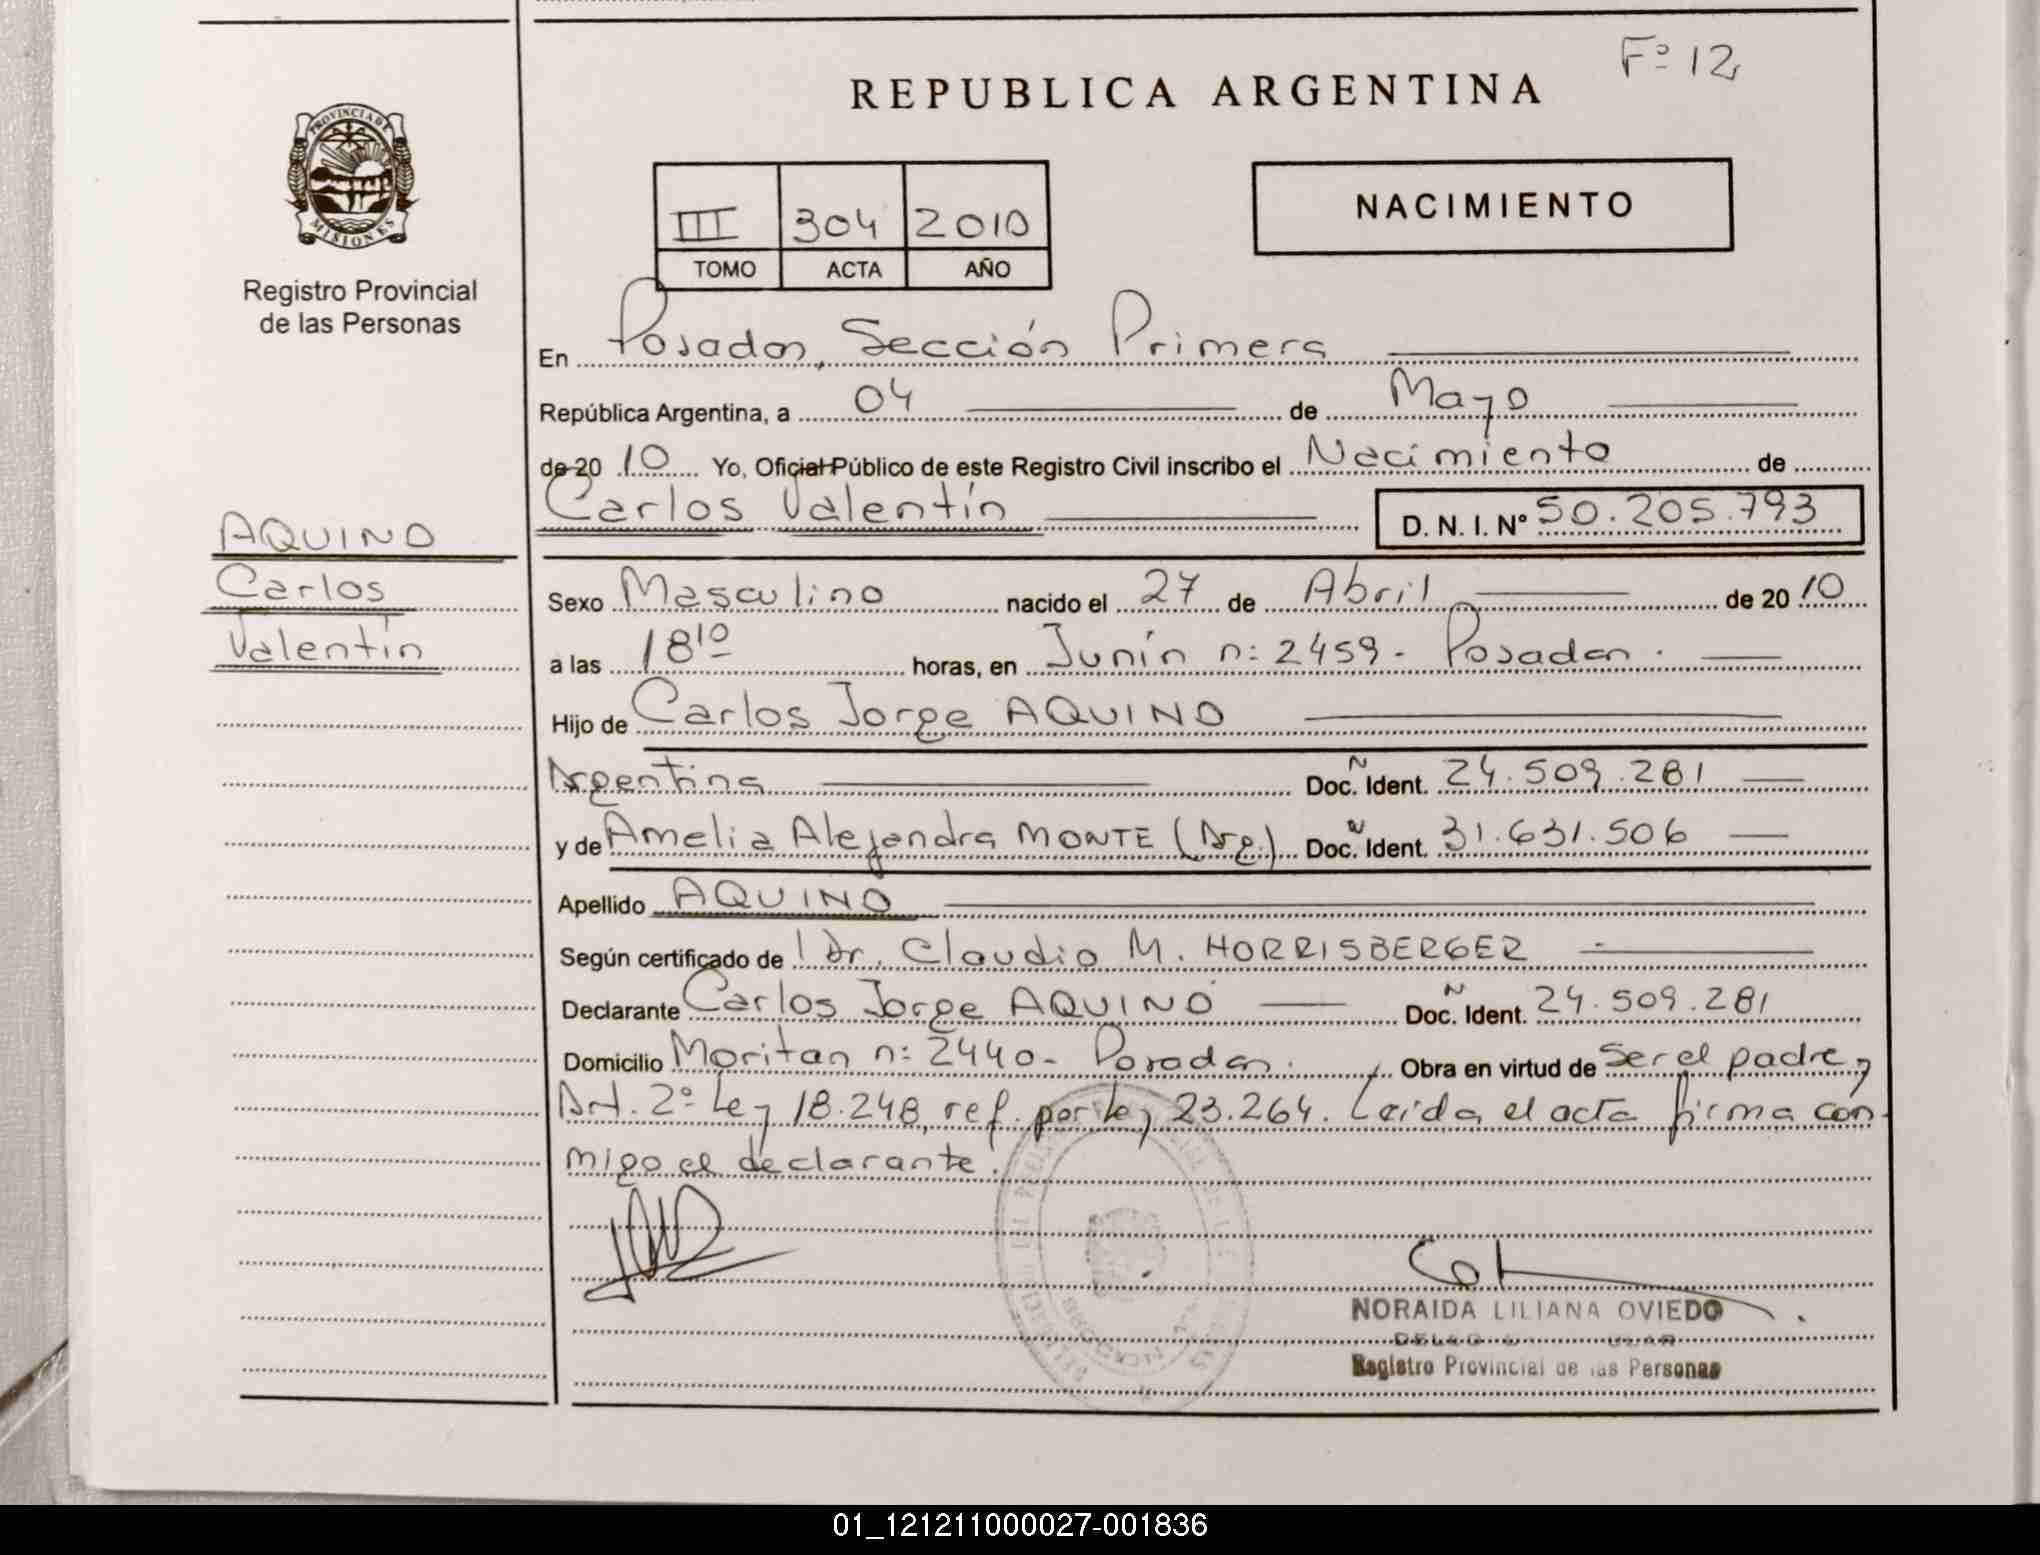 Fº 12
REPUBLICA ARGENTINA
PROVINCIA DE
MISIONES
Registro Provincial
de las Personas
III 304 2010
TOMO ACTA AÑO
NACIMIENTO
En Posadas, Sección Primera
República Argentina, a 04 de Mayo
de 20 10 Yo, Oficial Público de este Registro Civil inscribo el Nacimiento de
Carlos Valentín D. N. I. Nº 50.205.793
AQUINO
Carlos
Valentín
Sexo Masculino nacido el 27 de Abril de 20 10
a las 18¹⁰ horas, en Junín n: 2459 - Posadas.
Hijo de Carlos Jorge AQUINO
Argentina Doc. Ident. 24.509.281
y de Amelia Alejandra MONTE (Arg.) Doc. Ident. 31.631.506
Apellido AQUINO
Según certificado de Dr. Claudio M. HORRISBERGER
Declarante Carlos Jorge AQUINO Doc. Ident. 24.509.281
Domicilio Moritan n: 2440 - Posadas. Obra en virtud de Ser el padre y
Art. 2º Ley 18.248, ref. por Ley 23.264. Leída el acta firma con
migo el declarante.
NORAIDA LILIANA OVIEDO
Registro Provincial de las Personas
01_121211000027-001836